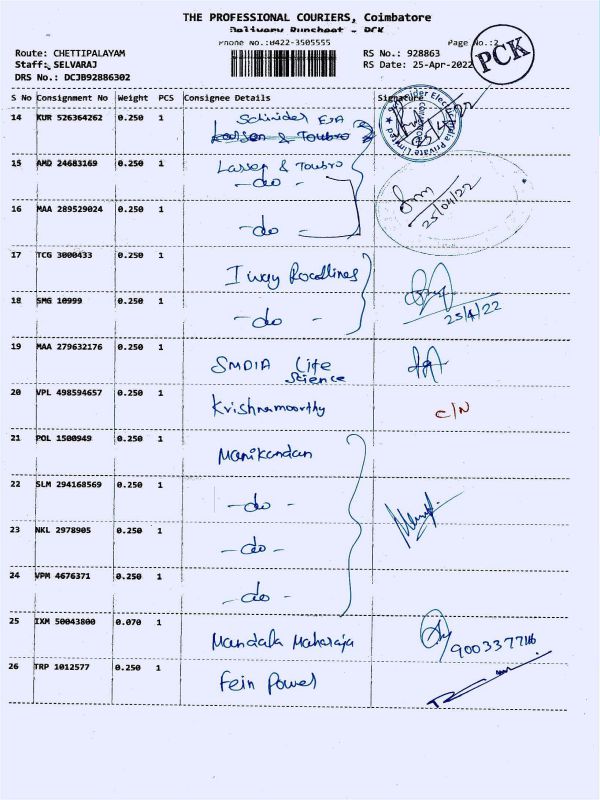 THE PROFESSIONAL COURIERS, Coimbatore
Delivery Runsheet - PCK
Phone No.:0422-3505555
Page No.:2
PCK
Route: CHETTIPALAYAM
RS No.: 928863
Staff: SELVARAJ
RS Date: 25-Apr-2022
DRS No.: DCJB92886302
S No Consignment No Weight PCS Consignee Details Signature
14 KUR 526364262 0.250 1 Schnider EIA
Larsen & Toubro
15 AMD 24683169 0.250 1 Larsen & Toubro
-do-
25/04/22
16 MAA 289529024 0.250 1 -do-
17 TCG 3000433 0.250 1 I way Roodlines
18 SMG 10999 0.250 1 -do-
25/4/22
19 MAA 279632176 0.250 1 SMDIA Life
Science
20 VPL 498594657 0.250 1 Krishnamoorthy C/N
21 POL 1500949 0.250 1 Manikandan
22 SLM 294168569 0.250 1 -do-
23 NKL 2978905 0.250 1 -do-
24 VPM 4676371 0.250 1 -do-
25 IXM 50043800 0.070 1 Mandala Maharaja
26 TRP 1012577 0.250 1 Fein Power